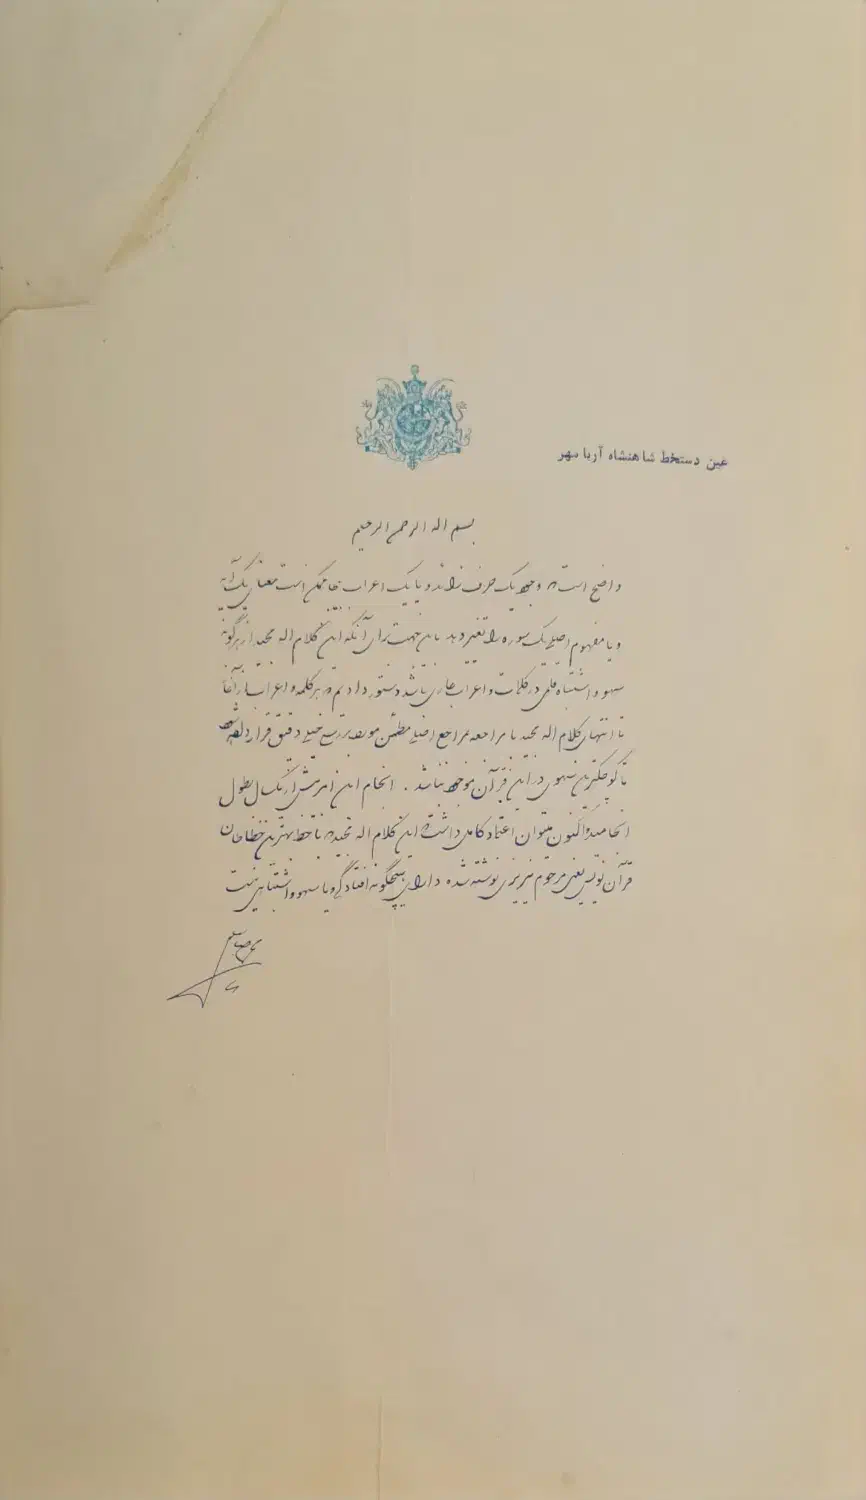 عین دستخط شاهنشاه آریا مهر
بسم اله الرحمن الرحیم
واضح است که وجود یک حرف زائد و یا یک اعراب نابجا ممکن است معنای یک آیه
و یا مفهوم اصلی یک سوره را تغییر دهد باین جهت برای آنکه این کلام اله مجید از هرگونه
سهو و اشتباه قلمی در کلمات و اعراب عاری باشد دستور دادیم که هر کلمه و اعراب از آغاز
تا انتهای کلام اله مجید با مراجعه بمراجع اصیل و مطمئن مورد بررسی خیلی دقیق قرار داده شود
تا کوچکترین سهوی در این قرآن موجود نباشد . انجام این امر بیش از یکسال بطول
انجامید و اکنون میتوان اعتماد کامل داشت که این کلام اله مجید که با خط بهترین خطاطان
قرآن نویس یعنی مرحوم نیریزی نوشته شده دارای هیچگونه افتادگی و یا سهو و اشتباهی نیست